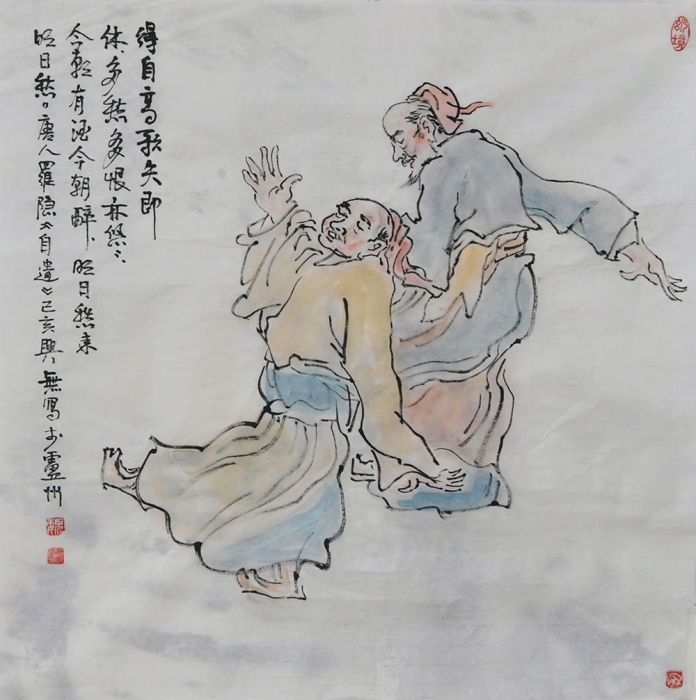 得自高歌失即
休、多愁多恨亦悠々
今朝有酒今朝醉、明日愁来
明日愁。唐人羅隐《自遣》己亥興無写於廬州